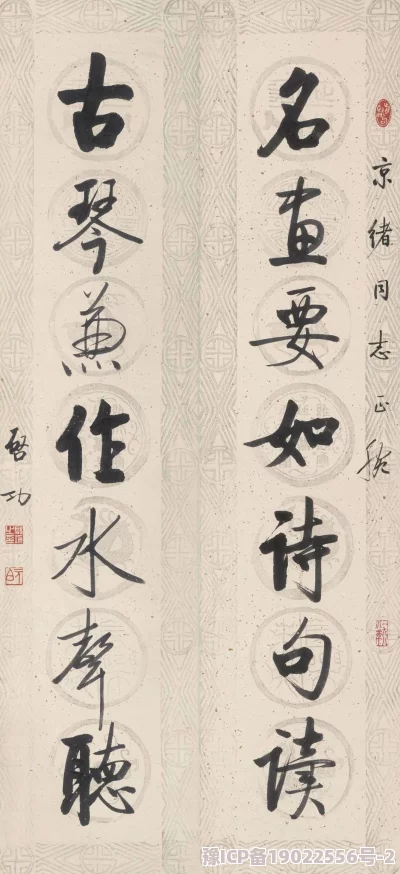 京绪同志正腕
名畫要如詩句讀
古琴兼作水聲聽
启功
豫ICP备19022556号-2